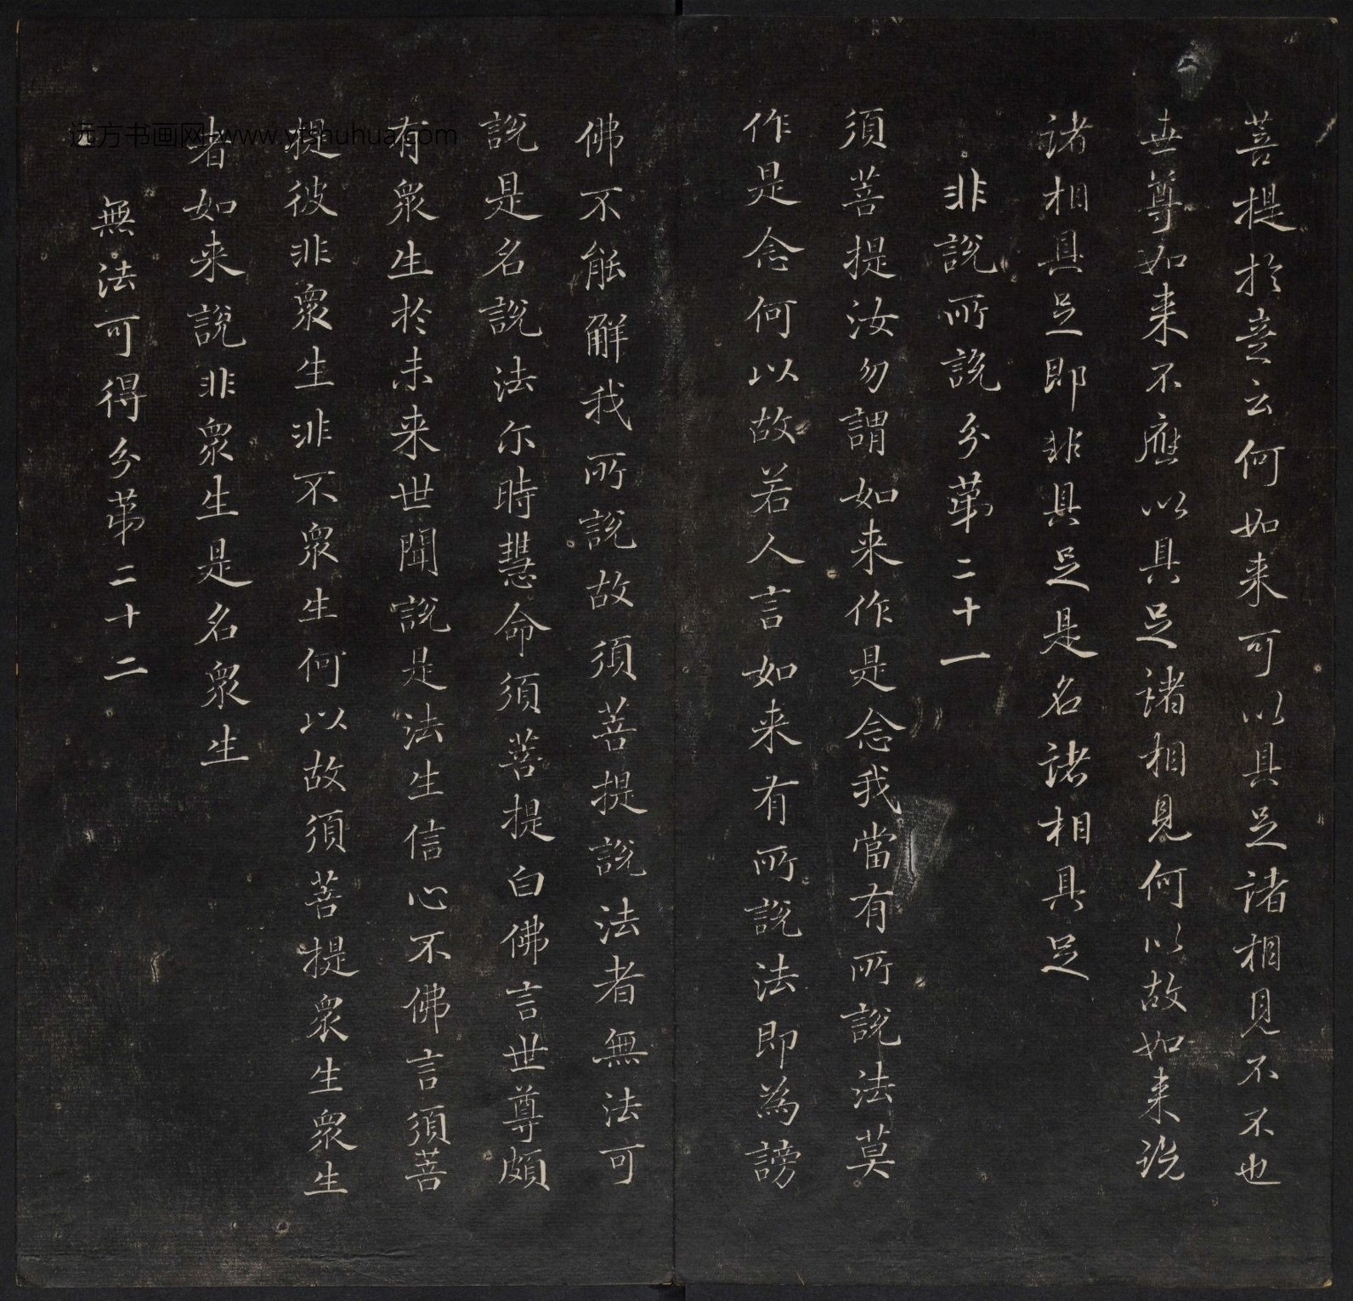 菩提於意云何如来可以具足諸相見不不也
世尊如来不應以具足諸相見何以故如来說
諸相具足即非具足是名諸相具足
非說所說分第二十一
須菩提汝勿謂如来作是念我當有所說法莫
作是念何以故若人言如来有所說法即為謗
佛不能解我所說故須菩提說法者無法可
說是名說法尔時慧命須菩提白佛言世尊頗
有眾生於未来世聞說是法生信心不佛言須菩
提彼非眾生非不眾生何以故須菩提眾生眾生
者如来說非眾生是名眾生
無法可得分第二十二
远方书画网 www.yfshuhua.com